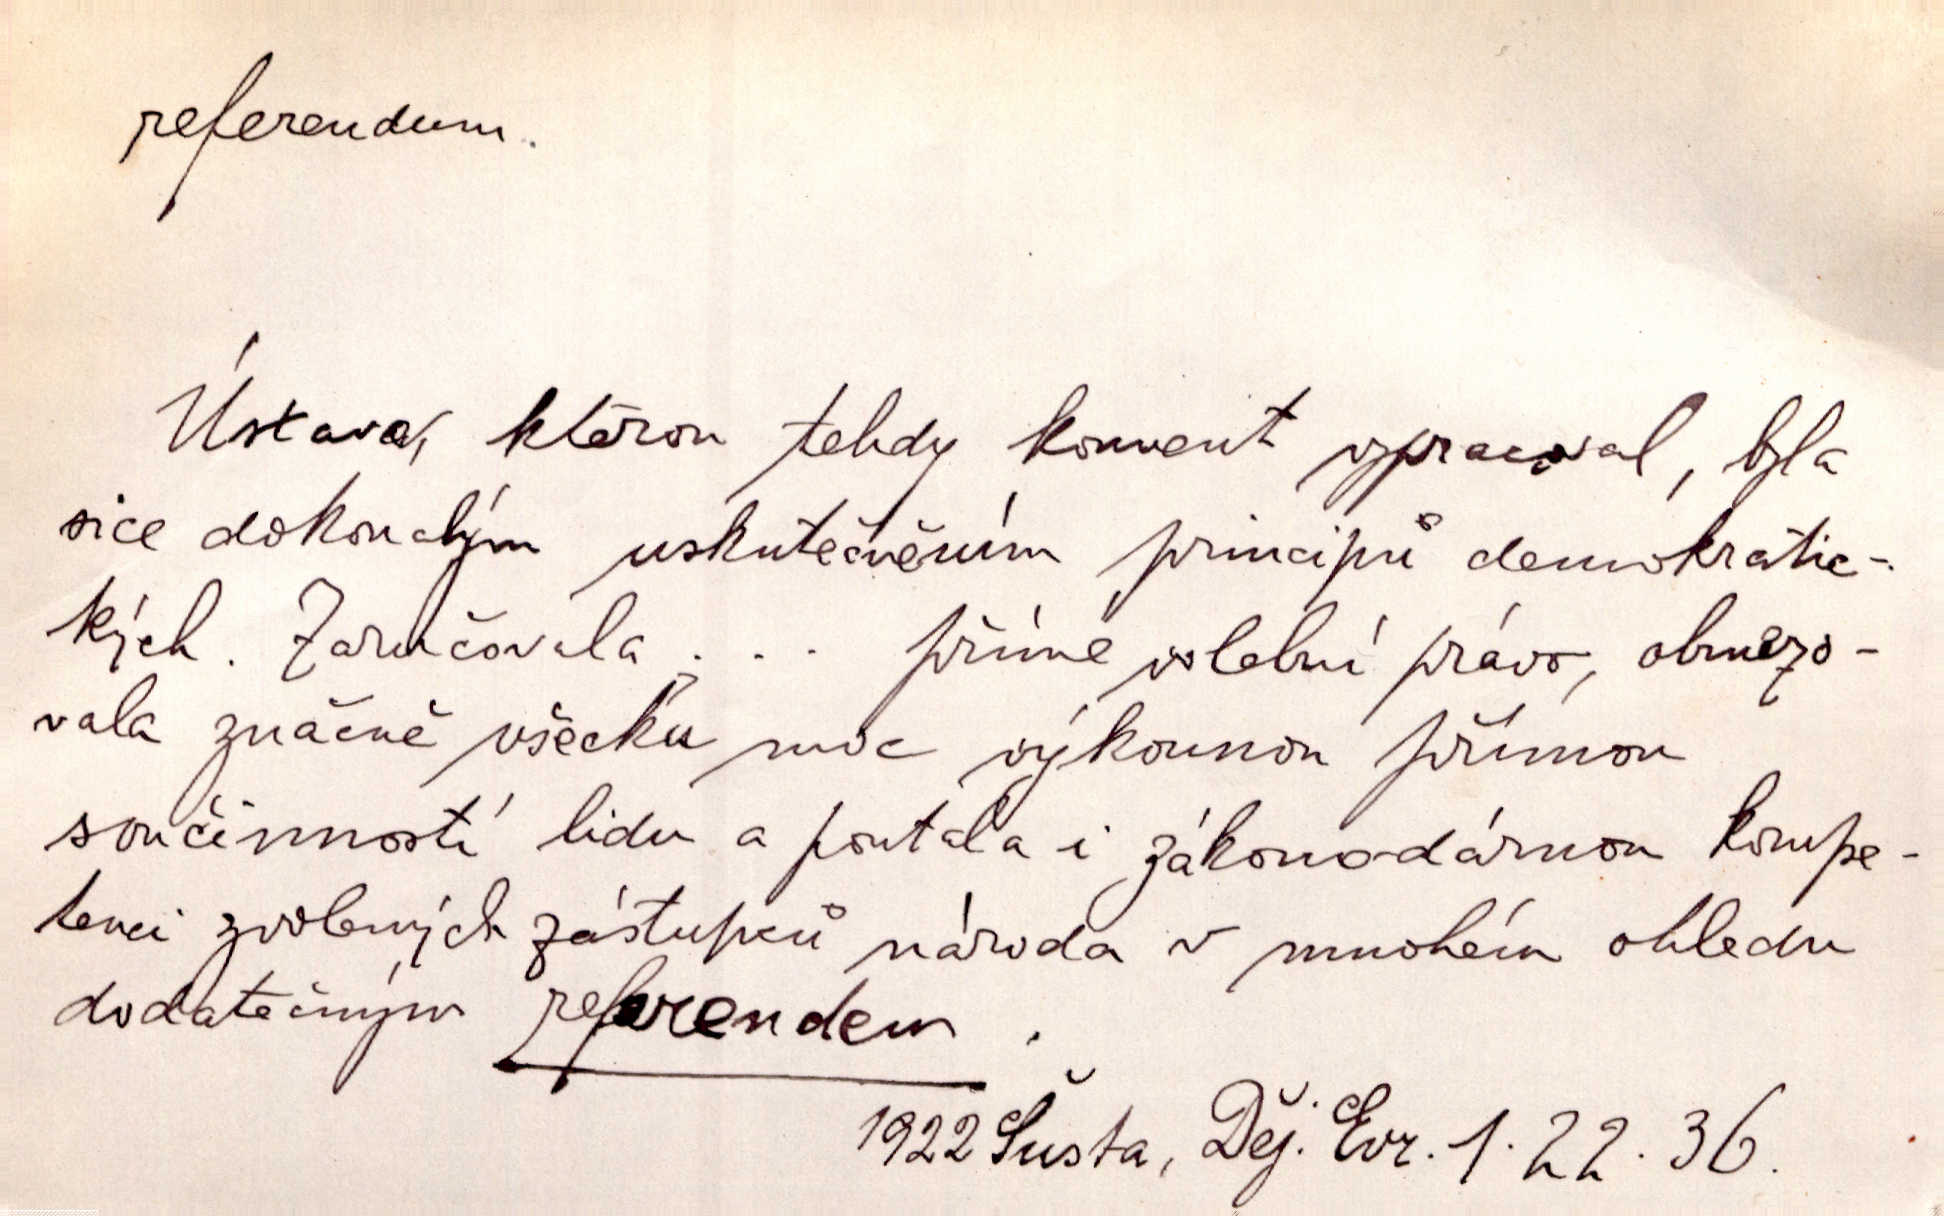 referendum.
Ústava, kterou tehdy konvent vypracoval, byla
sice dokonalým uskutečněním principů demokratic-
kých. Zaručovala . . . přímé volební právo, obmezo-
vala značně všecku moc výkonnou přímou
součinností lidu a poutala i zákonodárnou kompe-
tenci zvolených zástupců národa v mnohém ohledu
dodatečným referendem.
1922 Šusta, Děj. Evr. 1. 22. 36.